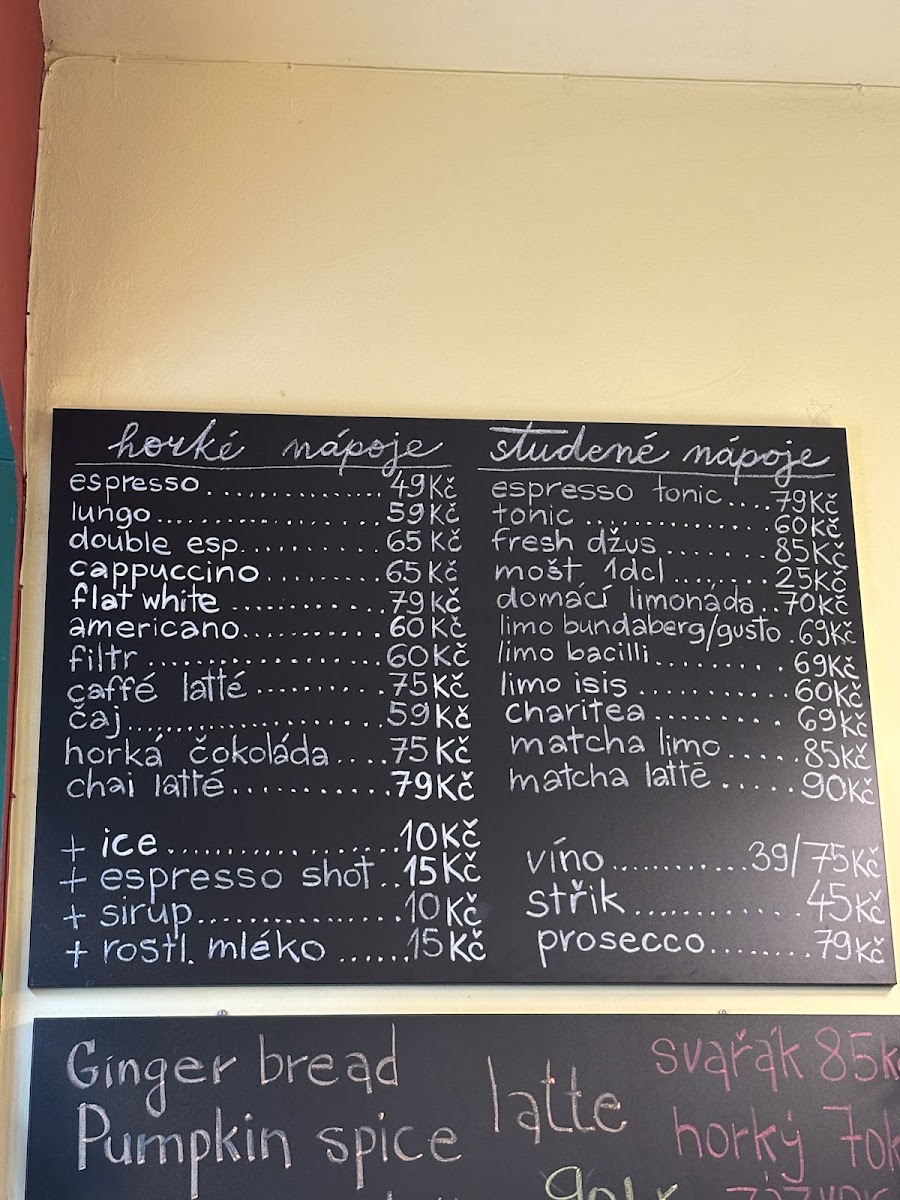 horké nápoje
espresso ............... 49Kč
lungo.................. 59Kč
double esp........... 65 Kč
cappuccino........... 65Kč
flat white ............ 79Kč
americano........... 60Kč
filtr .................... 60Kč
caffé latté ........... 75Kč
čaj...................... 59Kč
horká čokoláda .... 75Kč
chai latté ............ 79Kč
+ ice................... 10Kč
+ espresso shot .. 15Kč
+ sirup................ 10Kč
+ rostl. mléko ...... 15Kč
studené nápoje
espresso tonic .... 79Kč
tonic ................. 60Kč
fresh džus ....... 85Kč
mošt 1dcl ........ 25Kč
domácí limonáda .. 70Kč
limo bundaberg/gusto . 69Kč
limo bacilli .......... 69Kč
limo isis ........... 60Kč
charitea .......... 69Kč
matcha limo ..... 85Kč
matcha latté ...... 90Kč
víno.......... 39/75Kč
střik............ 45Kč
prosecco....... 79Kč
Ginger bread
Pumpkin spice
latte
svařák 85k
horký 70k